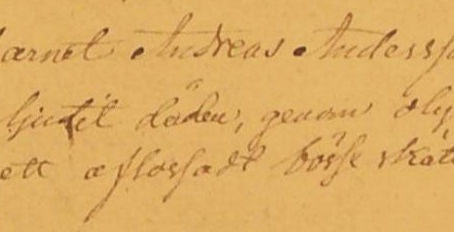 arnet Andreas Anderss
ljutit döden, genom oly
ett aflossadt bösse skåt